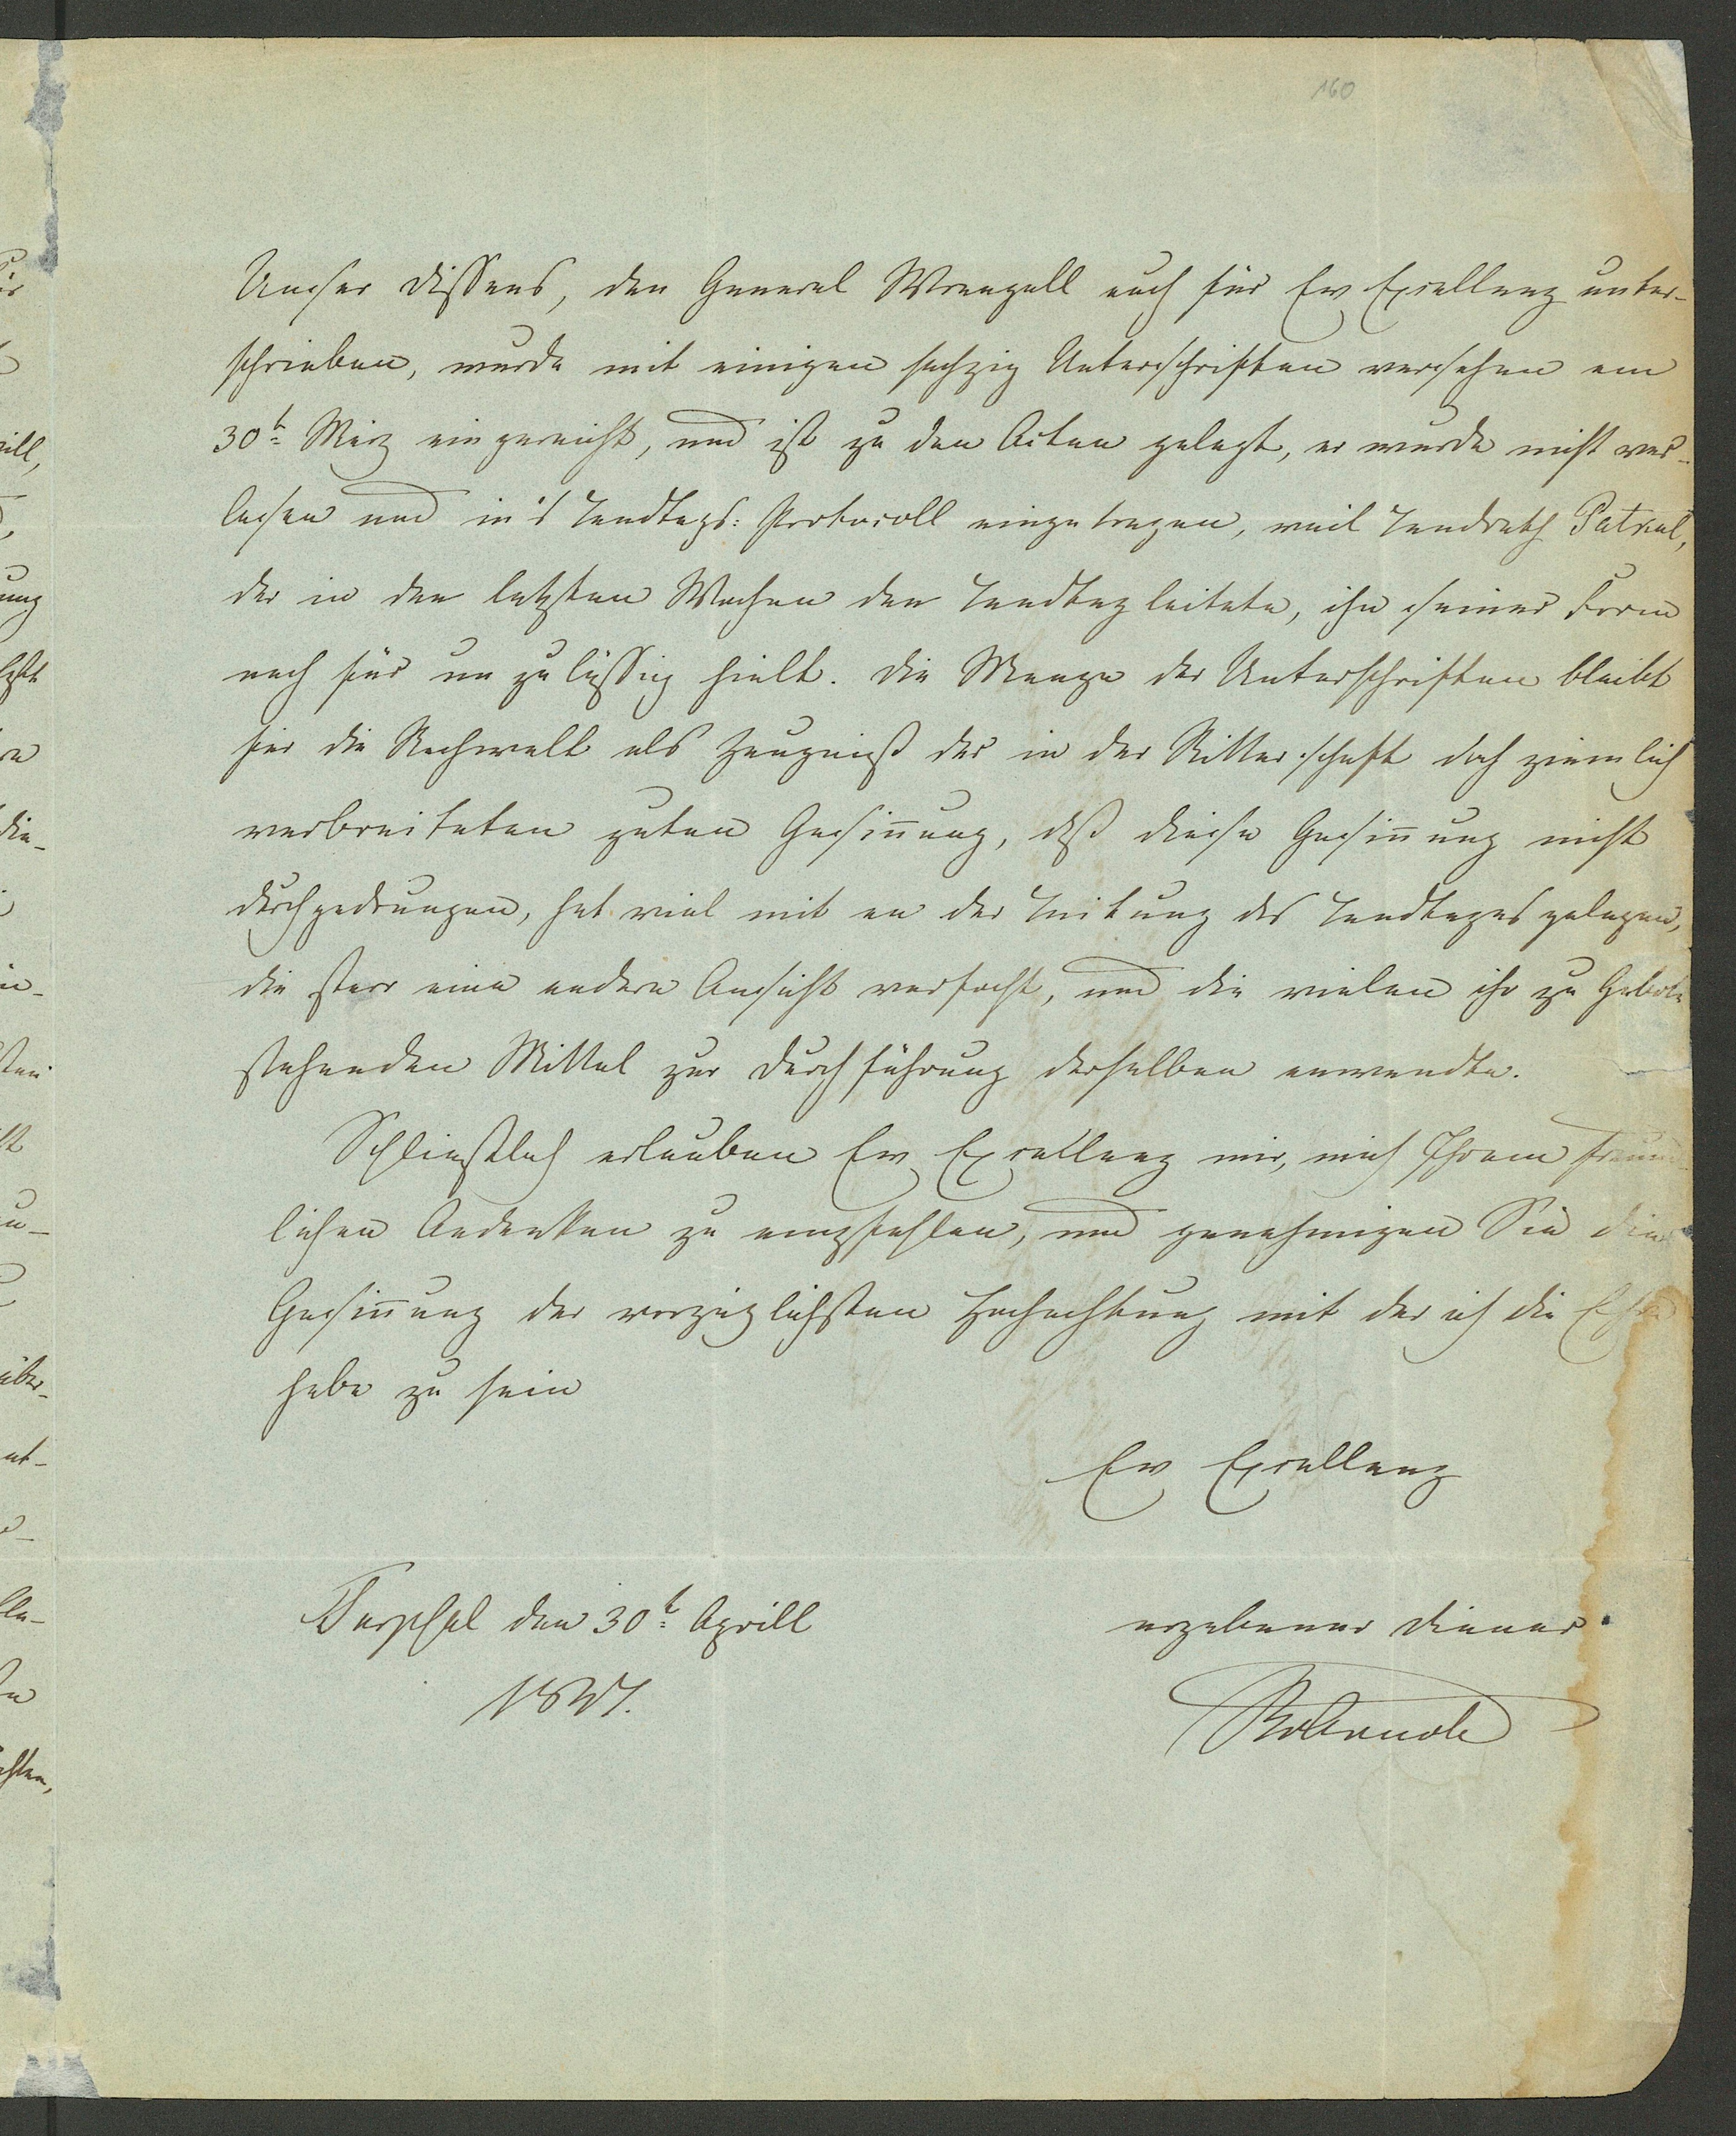 160
Unser Dissens, den General Wrangell auch für Ew Excellenz unter-
schrieben, wurde mit einigen sechzig Unterschriften versehen am
30t März eingereicht, und ist zu den Acten gelegt, er wurde nicht ver-
lesen und in's Landtags: Protocoll eingetragen, weil Landrath Patkul,
der in den letzten Wochen den Landtag leitete, ihn seiner Form
nach für unzulässig hielt. Die Menge der Unterschriften bleibt
für die Nachwelt als Zeugniß der in der Ritterschaft doch ziemlich
verbreiteten guten Gesin̄ung, daß diese Gesin̄ung nicht
durchgedrungen, hat viel mit an der Leitung des Landtages gelegen,
die starr eine andere Ansicht verfocht, und die vielen ihr zu Gebote
stehenden Mittel zur Durchführung derselben anwendte.
Schließlich erlauben Ew Excellenz mir, mich Ihrem freund-
lichen Andenken zu empfehlen, und genehmigen Sie die
Gesin̄ung der vorzüglichsten Hochachtung mit der ich die Ehre
habe zu sein
Ew Excellenz
den 30t Aprill
ergebener Diener